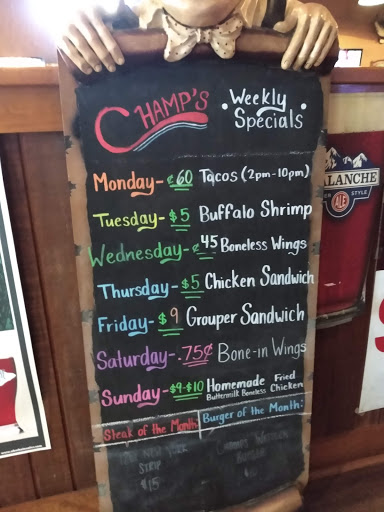 CHAMP'S
• Weekly Specials •
Monday- ¢60 Tacos (2pm-10pm)
Tuesday- $5 Buffalo Shrimp
Wednesday- ¢45 Boneless Wings
Thursday- $5 Chicken Sandwich
Friday- $9 Grouper Sandwich
Saturday- .75¢ Bone-in Wings
Sunday- $9-$10 Homemade Fried
Buttermilk Boneless Chicken
Steak of the Month:
Burger of the Month:
NEW YORK
STRIP
$15
BURGER
ALANCHE
STYLE
ALE